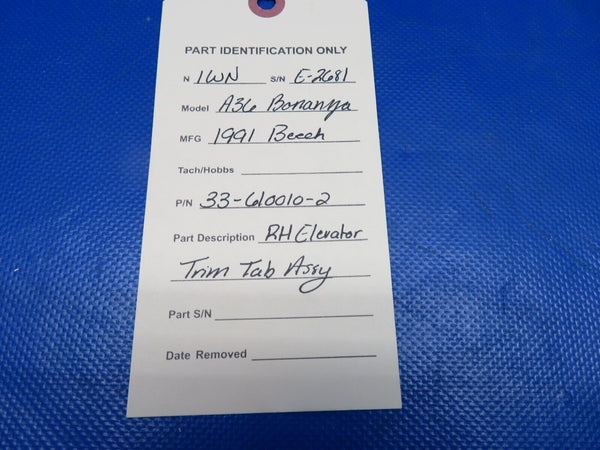 PART IDENTIFICATION ONLY
N 1WN S/N E-2681
Model A36 Bonanza
MFG 1991 Beech
Tach/Hobbs
P/N 33-610010-2
Part Description RH Elevator
Trim Tab Assy
Part S/N
Date Removed